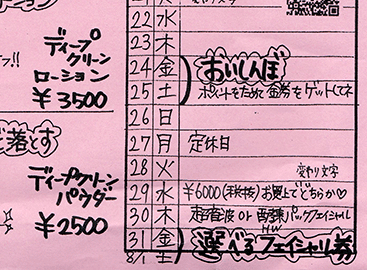 ディープ
クリーン
ローション
¥3500
ど落とす
ディープクリーン
パウダー
¥2500
22 水
23 木
24 金 おいしんぼ
25 土 ポイントをためて金券をゲットしてネ
26 日
27 月 定休日
28 火 変わり文字
29 水 ¥6000(税抜)お買上でどちらか♡
30 木 超音波 or 酵素パックフェイシャル
HW
31 金 選べるフェイシャル券
8/1 土